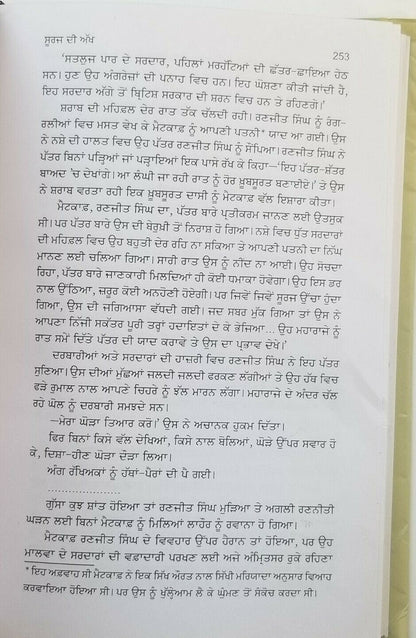 ਸੂਰਜ ਦੀ ਅੱਖ
253
'ਸਤਲੁਜ ਪਾਰ ਦੇ ਸਰਦਾਰ, ਪਹਿਲਾਂ ਮਰਹੱਟਿਆਂ ਦੀ ਛੱਤਰ-ਛਾਇਆ ਹੇਠ
ਸਨ। ਹੁਣ ਉਹ ਅੰਗਰੇਜ਼ਾਂ ਦੀ ਪਨਾਹ ਵਿਚ ਹਨ। ਇਹ ਘੋਸ਼ਣਾ ਕੀਤੀ ਜਾਂਦੀ ਹੈ,
ਇਹ ਸਰਦਾਰ ਅੱਗੇ ਤੋਂ ਬ੍ਰਿਟਿਸ਼ ਸਰਕਾਰ ਦੀ ਸ਼ਰਨ ਵਿਚ ਹਨ ਤੇ ਰਹਿਣਗੇ।'
ਸ਼ਰਾਬ ਦੀ ਮਹਿਫ਼ਲ ਦੇਰ ਰਾਤ ਤੱਕ ਚੱਲਦੀ ਰਹੀ। ਰਣਜੀਤ ਸਿੰਘ ਨੂੰ ਰੰਗ-
ਰਲੀਆਂ ਵਿਚ ਮਸਤ ਵੇਖ ਕੇ ਮੈਟਕਾਫ਼ ਨੂੰ ਆਪਣੀ ਪਤਨੀ* ਯਾਦ ਆ ਗਈ। ਉਸ
ਨੇ ਨਸ਼ੇ ਦੀ ਹਾਲਤ ਵਿਚ ਉਹ ਪੱਤਰ ਰਣਜੀਤ ਸਿੰਘ ਨੂੰ ਸੌਂਪਿਆ। ਰਣਜੀਤ ਸਿੰਘ ਨੇ
ਪੱਤਰ ਬਿਨਾਂ ਪੜ੍ਹਿਆਂ ਜਾਂ ਪੜ੍ਹਾਇਆਂ ਇਕ ਪਾਸੇ ਰੱਖ ਕੇ ਕਿਹਾ—'ਇਹ ਪੱਤਰ-ਸ਼ੱਤਰ
ਬਾਅਦ 'ਚ ਦੇਖਾਂਗੇ। ਆ ਲੰਘੀ ਜਾ ਰਹੀ ਰਾਤ ਨੂੰ ਹੋਰ ਖ਼ੂਬਸੂਰਤ ਬਣਾਈਏ।' ਤੇ ਉਸ
ਨੇ ਸ਼ਰਾਬ ਵਰਤਾ ਰਹੀ ਇਕ ਖ਼ੂਬਸੂਰਤ ਦਾਸੀ ਨੂੰ ਮੈਟਕਾਫ਼ ਵੱਲ ਇਸ਼ਾਰਾ ਕੀਤਾ।
ਮੈਟਕਾਫ਼, ਰਣਜੀਤ ਸਿੰਘ ਦਾ, ਪੱਤਰ ਬਾਰੇ ਪ੍ਰਤੀਕਰਮ ਜਾਨਣ ਲਈ ਉਤਸੁਕ
ਸੀ। ਪਰ ਪੱਤਰ ਬਾਰੇ ਉਸ ਦੀ ਬੇਰੁਖੀ ਤੋਂ ਨਿਰਾਸ਼ ਹੋ ਗਿਆ। ਨਸ਼ੇ ਵਿਚ ਧੁੱਤ ਸਰਦਾਰਾਂ
ਦੀ ਮਹਿਫ਼ਲ ਵਿਚ ਉਹ ਬਹੁਤੀ ਦੇਰ ਰਹਿ ਨਾ ਸਕਿਆ ਤੇ ਆਪਣੀ ਪਤਨੀ ਦਾ ਨਿੱਘ
ਮਾਨਣ ਲਈ ਚਲਿਆ ਗਿਆ। ਸਾਰੀ ਰਾਤ ਉਸ ਨੂੰ ਨੀਂਦ ਨਾ ਆਈ। ਉਹ ਸੋਚਦਾ
ਰਿਹਾ, ਪੱਤਰ ਬਾਰੇ ਜਾਣਕਾਰੀ ਮਿਲਦਿਆਂ ਹੀ ਕੋਈ ਧਮਾਕਾ ਹੋਵੇਗਾ। ਉਹ ਇਸ ਡਰ
ਨਾਲ ਉੱਠਿਆ, ਜ਼ਰੂਰ ਕੋਈ ਅਨਹੋਣੀ ਹੋਏਗੀ। ਪਰ ਜਿਵੇਂ ਜਿਵੇਂ ਸੂਰਜ ਉੱਚਾ ਹੁੰਦਾ
ਗਿਆ, ਉਸ ਦੀ ਜਗਿਆਸਾ ਵੱਧਦੀ ਗਈ। ਜਦ ਸਬਰ ਮੁੱਕ ਗਿਆ ਤਾਂ ਉਸ ਨੇ
ਆਪਣਾ ਨਿੱਜੀ ਸਕੱਤਰ ਪੂਰੀ ਤਰ੍ਹਾਂ ਹਦਾਇਤਾਂ ਦੇ ਕੇ ਭੇਜਿਆ... ਉਹ ਮਹਾਰਾਜੇ ਨੂੰ
ਰਾਤ ਸਮੇਂ ਦਿੱਤੇ ਪੱਤਰ ਦੀ ਯਾਦ ਕਰਾਵੇ ਤੇ ਉਸ ਦਾ ਪ੍ਰਭਾਵ ਦੇਖੇ।
ਦਰਬਾਰੀਆਂ ਅਤੇ ਸਰਦਾਰਾਂ ਦੀ ਹਾਜ਼ਰੀ ਵਿਚ ਰਣਜੀਤ ਸਿੰਘ ਨੇ ਇਹ ਪੱਤਰ
ਸੁਣਿਆ। ਉਸ ਦੀਆਂ ਮੁੱਛਾਂ ਜਲਦੀ ਜਲਦੀ ਫਰਕਣ ਲੱਗੀਆਂ ਤੇ ਉਹ ਹੱਥ ਵਿਚ
ਫੜੇ ਰੁਮਾਲ ਨਾਲ ਆਪਣੇ ਚਿਹਰੇ ਨੂੰ ਝੱਲ ਮਾਰਨ ਲੱਗਾ। ਮਹਾਰਾਜੇ ਦੇ ਅੰਦਰ ਚੱਲ
ਰਹੇ ਘੋਲ ਨੂੰ ਦਰਬਾਰੀ ਸਮਝਦੇ ਸਨ।
—ਮੇਰਾ ਘੋੜਾ ਤਿਆਰ ਕਰੋ।' ਉਸ ਨੇ ਅਚਾਨਕ ਹੁਕਮ ਦਿੱਤਾ।
ਫਿਰ ਬਿਨਾਂ ਕਿਸੇ ਵੱਲ ਦੇਖਿਆਂ, ਕਿਸੇ ਨਾਲ ਬੋਲਿਆਂ, ਘੋੜੇ ਉੱਪਰ ਸਵਾਰ ਹੋ
ਕੇ, ਦਿਸ਼ਾ-ਹੀਣ ਘੋੜਾ ਦੌੜਾ ਲਿਆ।
ਅੰਗ ਰੱਖਿਅਕਾਂ ਨੂੰ ਹੱਥਾਂ-ਪੈਰਾਂ ਦੀ ਪੈ ਗਈ।
....................
ਗੁੱਸਾ ਕੁਝ ਸ਼ਾਂਤ ਹੋਇਆ ਤਾਂ ਰਣਜੀਤ ਸਿੰਘ ਮੁੜਿਆ ਤੇ ਅਗਲੀ ਰਣਨੀਤੀ
ਘੜਨ ਲਈ ਬਿਨਾਂ ਮੈਟਕਾਫ਼ ਨੂੰ ਮਿਲਿਆਂ ਲਾਹੌਰ ਨੂੰ ਰਵਾਨਾ ਹੋ ਗਿਆ।
ਮੈਟਕਾਫ਼ ਰਣਜੀਤ ਸਿੰਘ ਦੇ ਵਿਵਹਾਰ ਉੱਪਰ ਹੈਰਾਨ ਤਾਂ ਹੋਇਆ, ਪਰ ਉਹ
ਮਾਲਵਾ ਦੇ ਸਰਦਾਰਾਂ ਦੀ ਵਫ਼ਾਦਾਰੀ ਪਰਖਣ ਲਈ ਅਜੇ ਅੰਮ੍ਰਿਤਸਰ ਰੁਕੇ ਰਹਿਣਾ
* ਇਹ ਅਫ਼ਵਾਹ ਸੀ ਮੈਟਕਾਫ਼ ਨੇ ਇਕ ਸਿੱਖ ਔਰਤ ਨਾਲ ਸਿੱਖੀ ਮਰਿਯਾਦਾ ਅਨੁਸਾਰ ਵਿਆਹ
ਕਰਵਾਇਆ ਹੋਇਆ ਸੀ। ਪਰ ਉਸ ਨੂੰ ਖੁੱਲ੍ਹੇਆਮ ਲੈ ਕੇ ਘੁੰਮਣ ਤੋਂ ਸੰਕੋਚ ਕਰਦਾ ਸੀ।